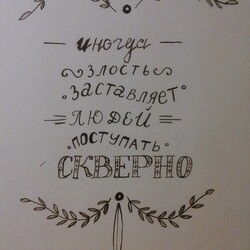 иногда
злость
заставляет
людей
поступать
СКВЕРНО